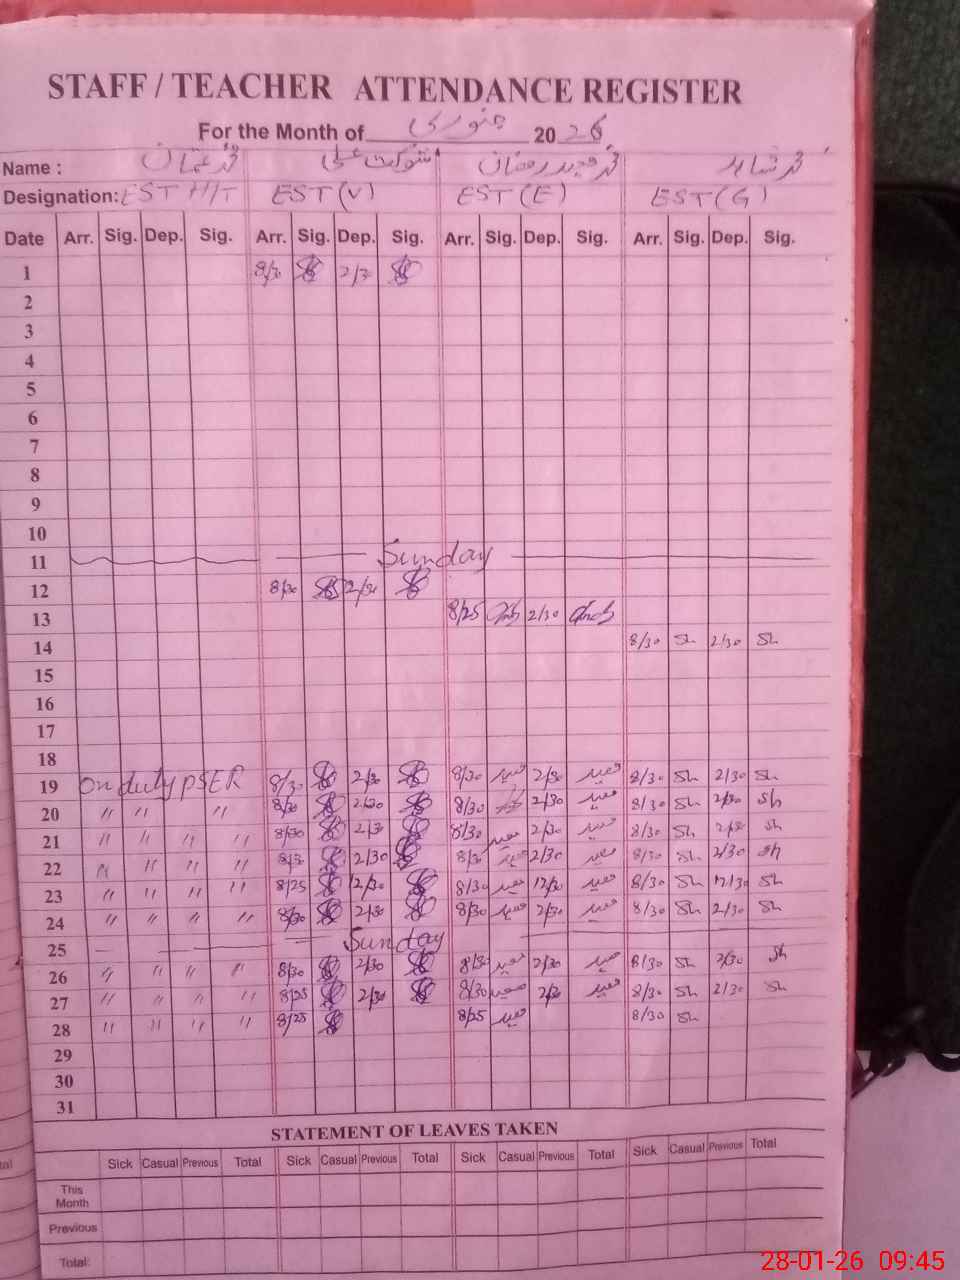 STAFF / TEACHER ATTENDANCE REGISTER
For the Month of جنوری 2026
Name : محمد عثمان شوکت علی محمد رمضان محمد شاہد
Designation: EST H/T EST (V) EST (E) EST (G)
Date Arr. Sig. Dep. Sig. Arr. Sig. Dep. Sig. Arr. Sig. Dep. Sig. Arr. Sig. Dep. Sig.
1 8/30 2/30
2
3
4
5
6
7
8
9
10
11 Sunday
12 8/30 2/30
13 8/25 2/30
14 8/30 Sh 2/30 Sh
15
16
17
18
19 On duty PSER 8/30 2/30 8/30 معید 2/30 معید 8/30 Sh 2/30 Sh
20 " " " 8/30 2/30 8/30 2/30 معید 8/30 Sh 2/30 Sh
21 " " " " 8/30 2/30 8/30 معید 2/30 معید 8/30 Sh 2/30 Sh
22 " " " " 8/30 2/30 8/30 معید 2/30 معید 8/30 Sh 2/30 Sh
23 " " " " 8/25 12/30 8/30 معید 12/30 معید 8/30 Sh 12/30 Sh
24 " " " " 8/30 2/30 8/30 معید 2/30 معید 8/30 Sh 2/30 Sh
25 Sunday
26 " " " " 8/30 2/30 8/30 معید 2/30 معید 8/30 Sh 2/30 Sh
27 " " " " 8/25 2/30 8/30 معید 2/30 معید 8/30 Sh 2/30 Sh
28 " " " " 8/25 8/25 معید 8/30 Sh
29
30
31
STATEMENT OF LEAVES TAKEN
Sick Casual Previous Total Sick Casual Previous Total Sick Casual Previous Total Sick Casual Previous Total
This Month
Previous
Total:
28-01-26 09:45